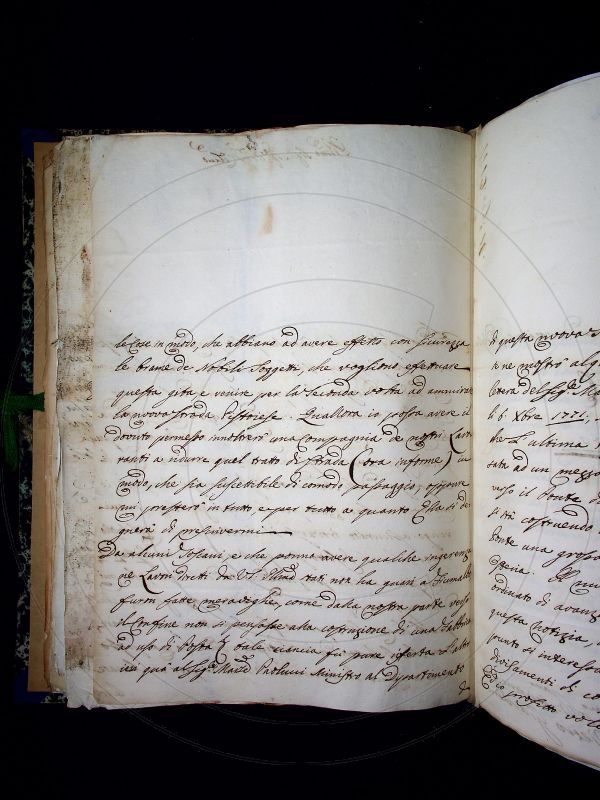 le cose in modo, che abbiano ad avere effetto con sicurezza
le brame de Nobili Soggetti, che vogliono effettuare
questa gita e venire per la seconda volta ad ammirare
la nuova strada Pistoiese. Qualora io possa avere il
dovuto permesso inoltrerò una Compagnia de nostri Lavo
ranti a ridurre quel tratto di strada (ora informe) in
modo, che sia suscettibile di comodo passaggio, oppure
mi presterò in tutto e per tutto a quanto Ella si de
gnerà di prescrivermi
Da alcuni Toscani, e che ponno avere qualche ingerenza
ne Lavori diretti da non ha guari a Fiumalbo
furon fatte meraviglie, come dalla nostra parte verso
il Confine non si pensasse alla costruzione di una fabbrica
ad uso di Posta tale ciancia fu pure riferta l'altro
ieri quà al Sig.r Paolucci Ministro al Dipartimento
di questa nuova
a ne mostrò
lettera del Sig.r
li 6. Xbre 1771,
che l'ultima
ad un mezzo
verso il Ponte
si stà costruendo
Ponte una
Osteria
ordinato di
questa notizia,
punto si
divisamenti di